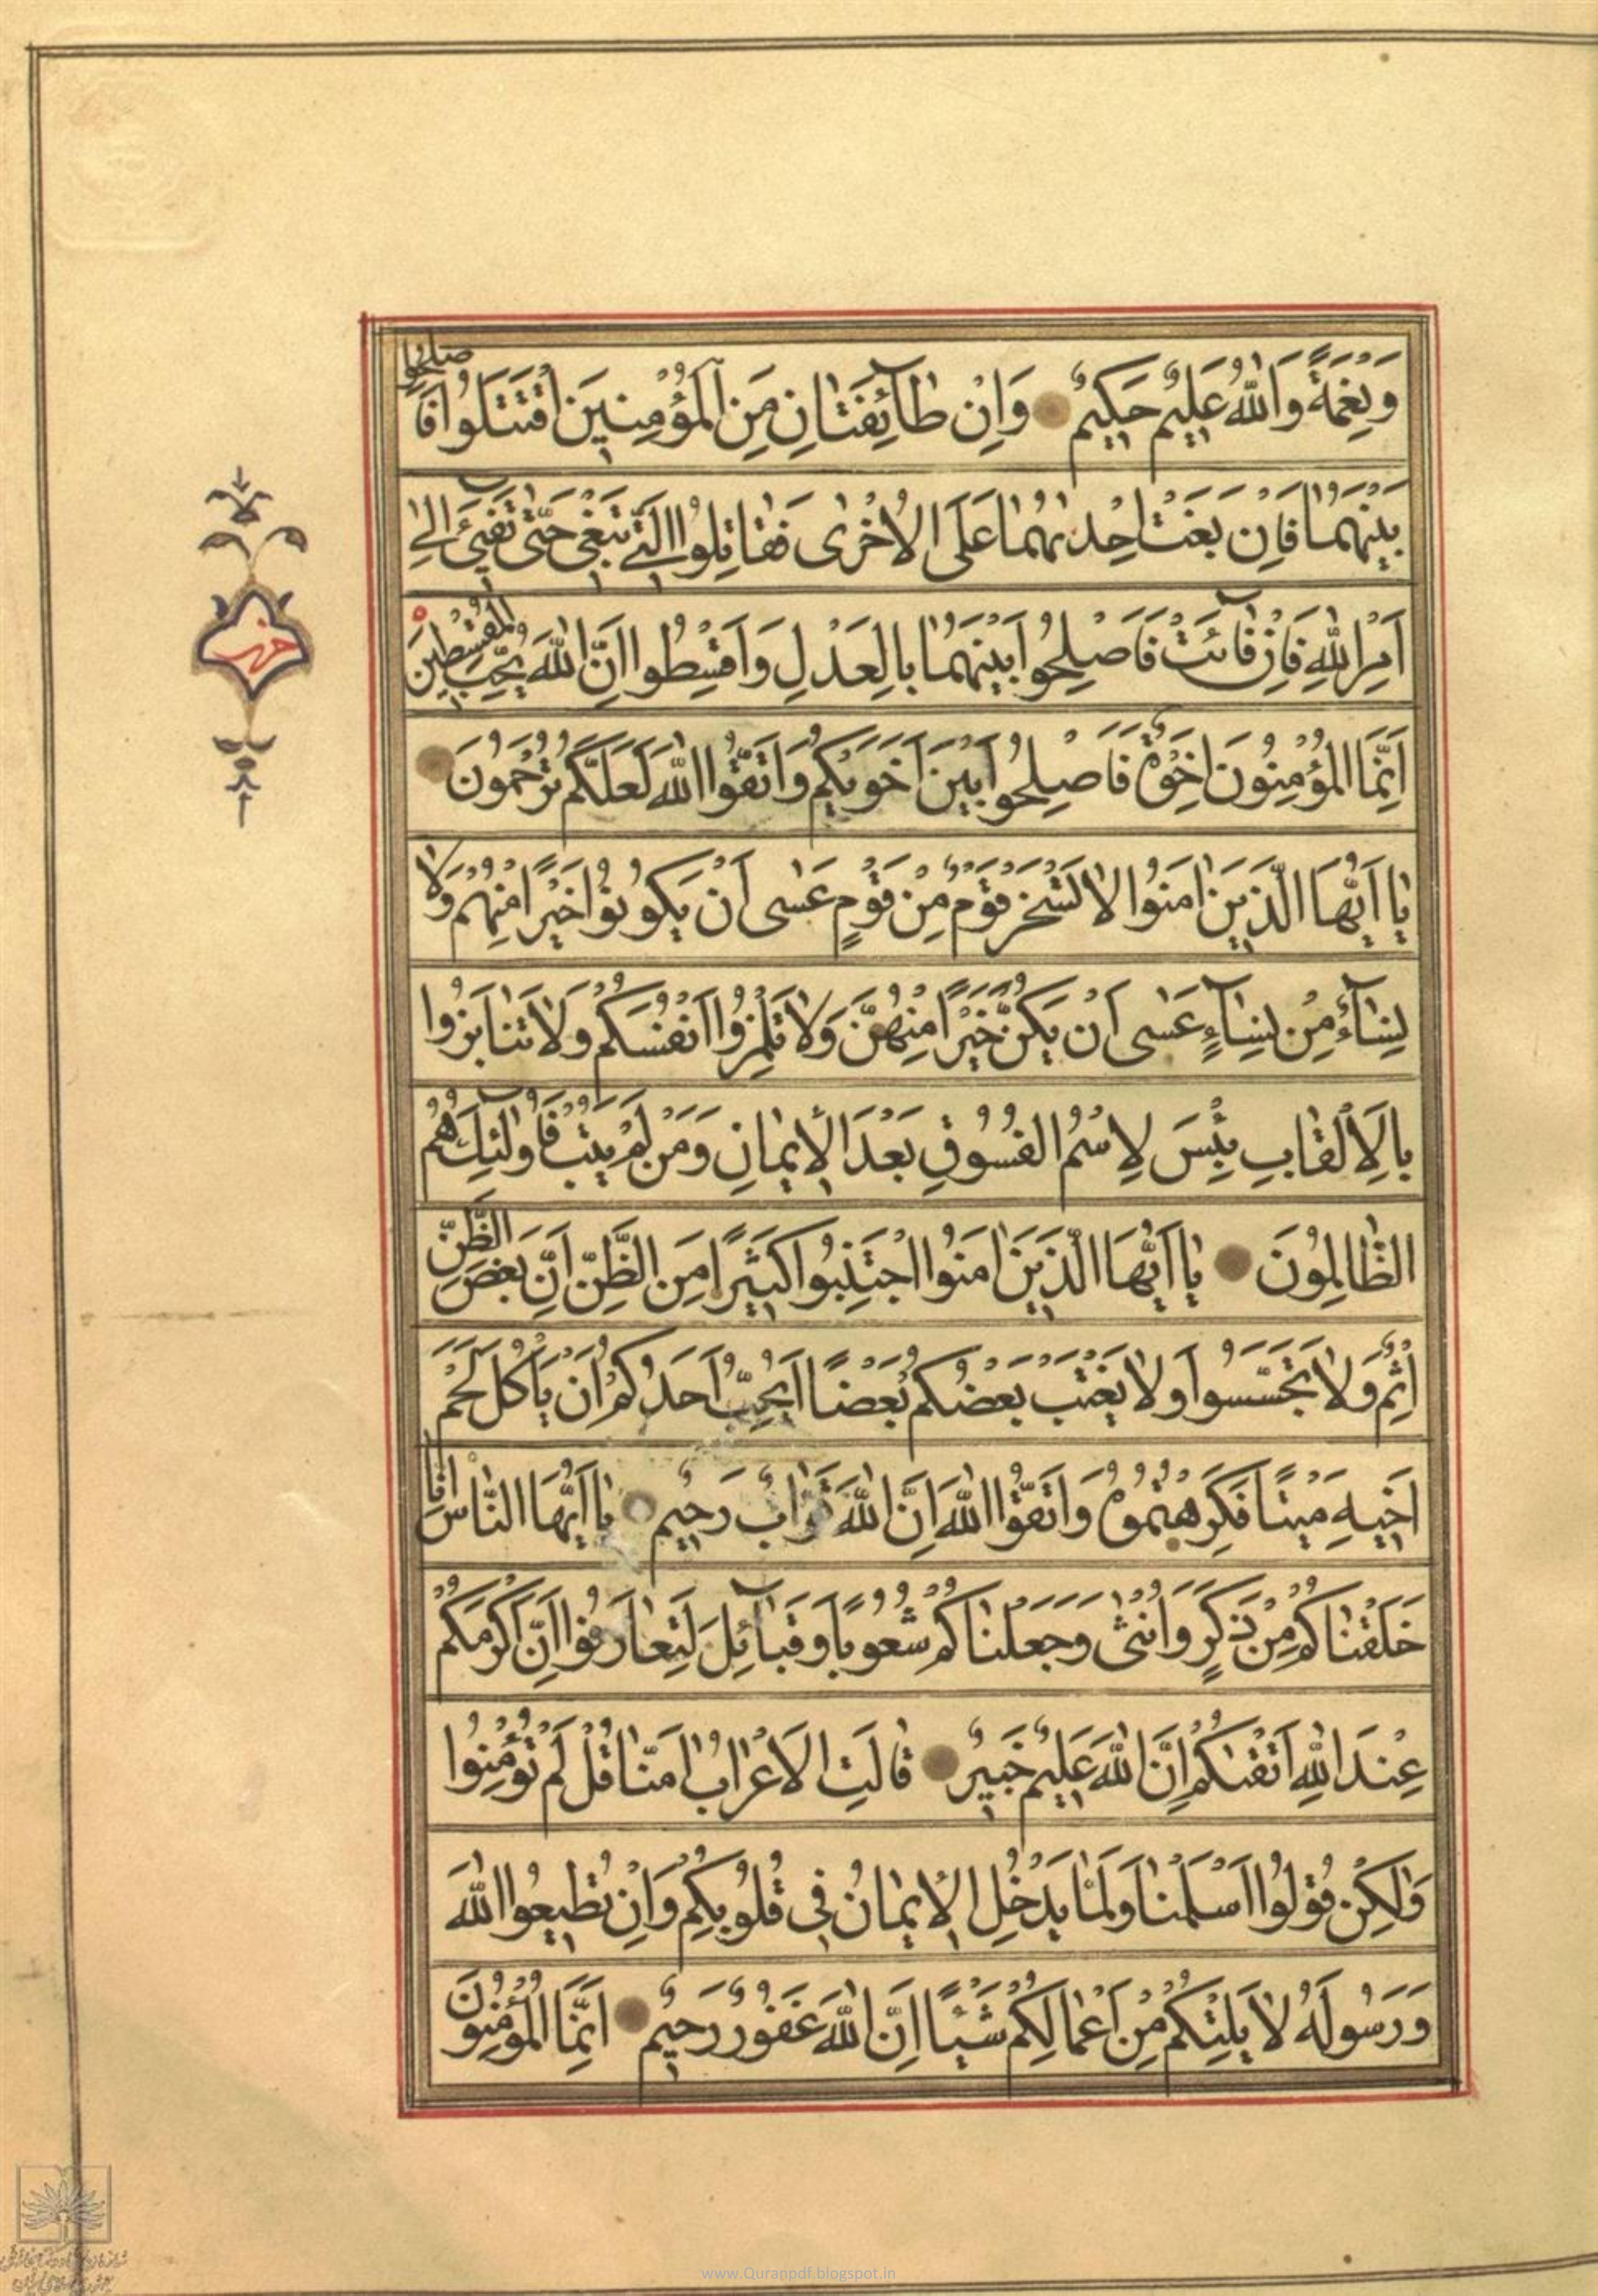 وَنِعْمَةً وَاللهُ عَلِيمٌ حَكِيمٌ وَاِنْ طَآئِفَتَانِ مِنَ الْمُؤْمِنِينَ اقْتَتَلُوا فَاَصْلِحُوا
بَيْنَهُمَا فَاِنْ بَغَتْ اِحْدٰىهُمَا عَلَى الْاُخْرٰى فَقَاتِلُوا الَّتِي تَبْغِي حَتّٰى تَفِيٓءَ اِلٰى
اَمْرِ اللهِ فَاِنْ فَآئَتْ فَاَصْلِحُوا بَيْنَهُمَا بِالْعَدْلِ وَاَقْسِطُوا اِنَّ اللهَ يُحِبُّ الْمُقْسِطِينَ
اِنَّمَا الْمُؤْمِنُونَ اِخْوَةٌ فَاَصْلِحُوا بَيْنَ اَخَوَيْكُمْ وَاتَّقُوا اللهَ لَعَلَّكُمْ تُرْحَمُونَ
يَا اَيُّهَا الَّذِينَ اٰمَنُوا لَا يَسْخَرْ قَوْمٌ مِنْ قَوْمٍ عَسٰى اَنْ يَكُونُوا خَيْرًا مِنْهُمْ وَلَا
نِسَآءٌ مِنْ نِسَآءٍ عَسٰى اَنْ يَكُنَّ خَيْرًا مِنْهُنَّ وَلَا تَلْمِزُوا اَنْفُسَكُمْ وَلَا تَنَابَزُوا
بِالْاَلْقَابِ بِئْسَ لِاسْمُ الْفُسُوقِ بَعْدَ الْاِيمَانِ وَمَنْ لَمْ يَتُبْ فَاُولٰٓئِكَ هُمُ
الظَّالِمُونَ يَا اَيُّهَا الَّذِينَ اٰمَنُوا اجْتَنِبُوا كَثِيرًا مِنَ الظَّنِّ اِنَّ بَعْضَ الظَّنِّ
اِثْمٌ وَلَا تَجَسَّسُوا وَلَا يَغْتَبْ بَعْضُكُمْ بَعْضًا اَيُحِبُّ اَحَدُكُمْ اَنْ يَاْكُلَ لَحْمَ
اَخِيهِ مَيْتًا فَكَرِهْتُمُوهُ وَاتَّقُوا اللهَ اِنَّ اللهَ تَوَّابٌ رَحِيمٌ يَا اَيُّهَا النَّاسُ اِنَّا
خَلَقْنَاكُمْ مِنْ ذَكَرٍ وَاُنْثٰى وَجَعَلْنَاكُمْ شُعُوبًا وَقَبَآئِلَ لِتَعَارَفُوا اِنَّ اَكْرَمَكُمْ
عِنْدَ اللهِ اَتْقٰىكُمْ اِنَّ اللهَ عَلِيمٌ خَبِيرٌ قَالَتِ الْاَعْرَابُ اٰمَنَّا قُلْ لَمْ تُؤْمِنُوا
وَلٰكِنْ قُولُوا اَسْلَمْنَا وَلَمَّا يَدْخُلِ الْاِيمَانُ فِي قُلُوبِكُمْ وَاِنْ تُطِيعُوا اللهَ
وَرَسُولَهُ لَا يَلِتْكُمْ مِنْ اَعْمَالِكُمْ شَيْئًا اِنَّ اللهَ غَفُورٌ رَحِيمٌ اِنَّمَا الْمُؤْمِنُونَ
حزب
www.Quranpdf.blogspot.in